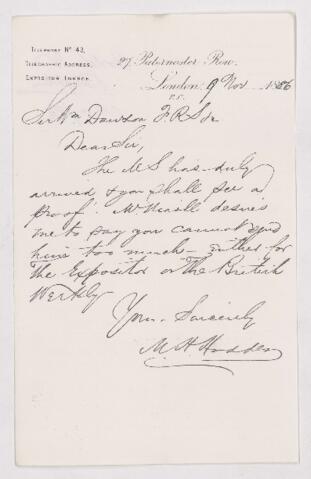 TELEPHONE Nº 43.
TELEGRAPHIC ADDRESS,
EXPOSITOR LONDON.
27 Paternoster Row,
London, 9 Nov 1886
Sir Wm Dawson F.R.S &c
Dear Sir,
The MS has duly
arrived & you shall see a
proof. Mr Nicoll desires
me to say you cannot send
him too much – either for
the Expositor or the British
Weekly.
Yours Sincerely
M. H. Hodder